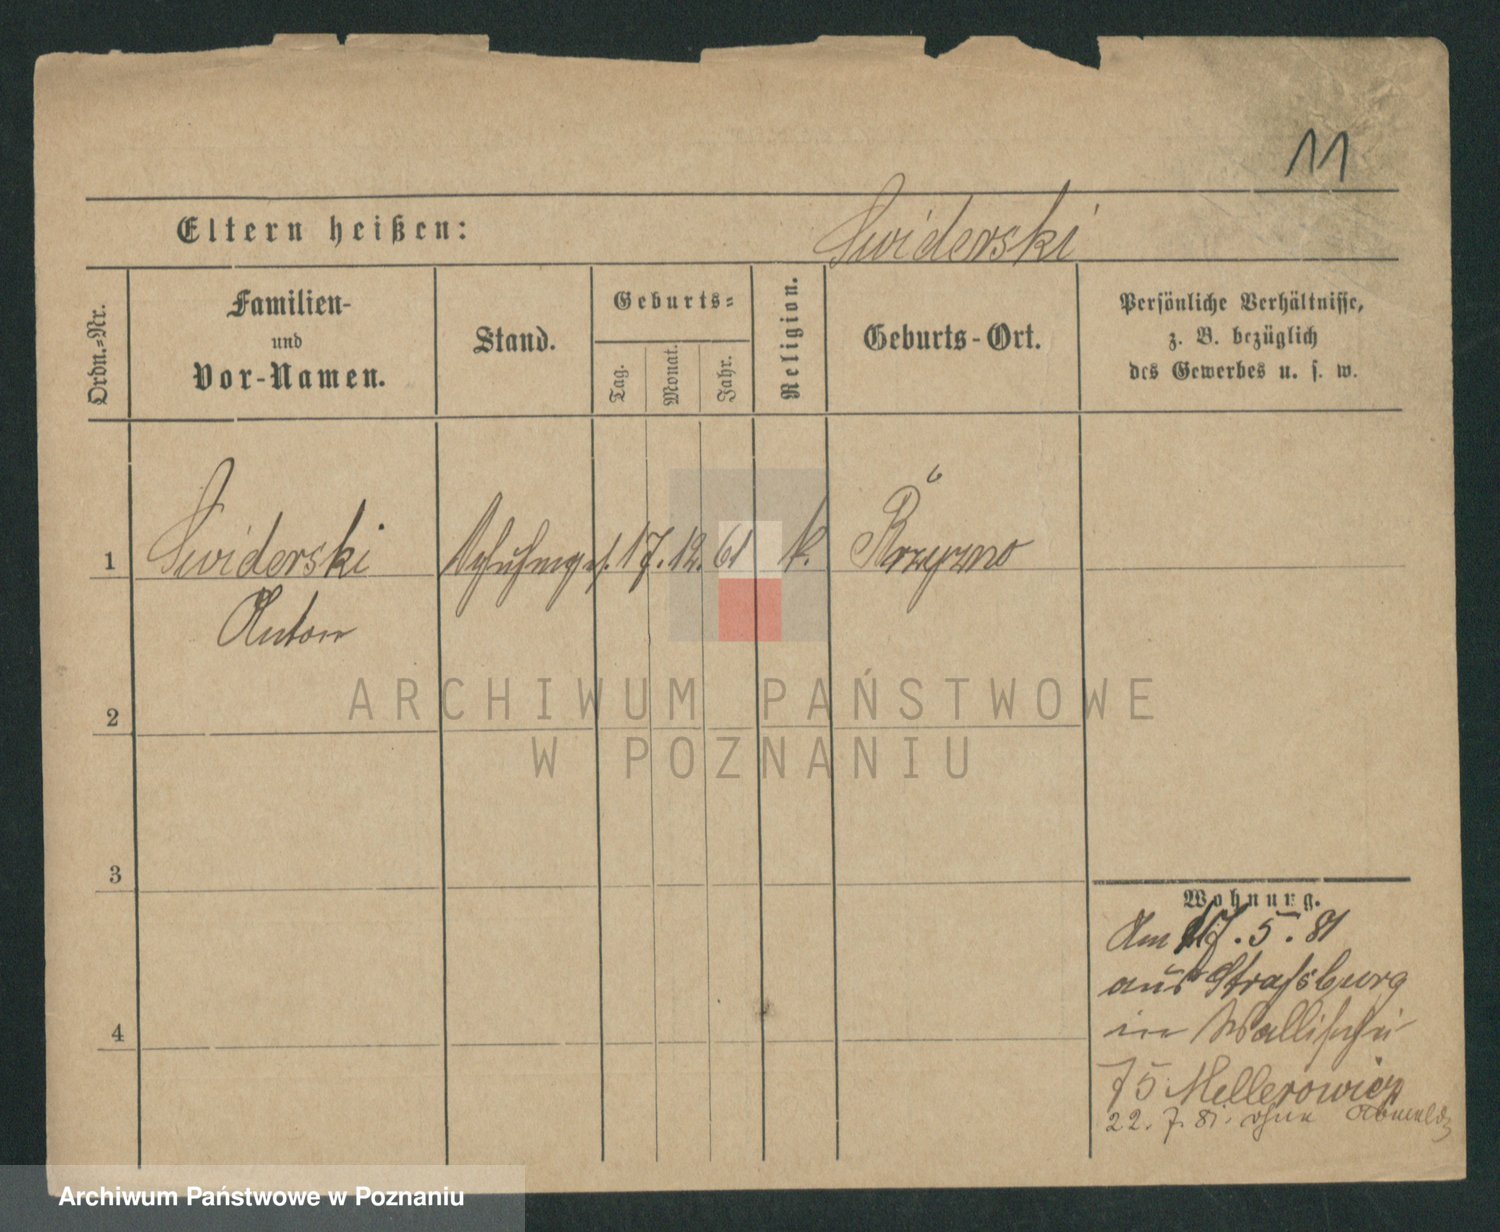 11
Eltern heißen: Swiderski
Ordn.-Nr.
Familien-
und
Vor-Namen.
Stand.
Geburts-
Tag.
Monat.
Jahr.
Religion.
Geburts-Ort.
Persönliche Verhältnisse,
z. B. bezüglich
des Gewerbes u. s. w.
1 Swiderski 17. 12. 61 k.
Anton
2
3
4
ARCHIWUM PAŃSTWOWE
W POZNANIU
Wohnung.
Am 17. 5. 81
aus Strassburg
in Wallischei
75 Mellerowicz
22. 7. 81. ohne
Archiwum Państwowe w Poznaniu